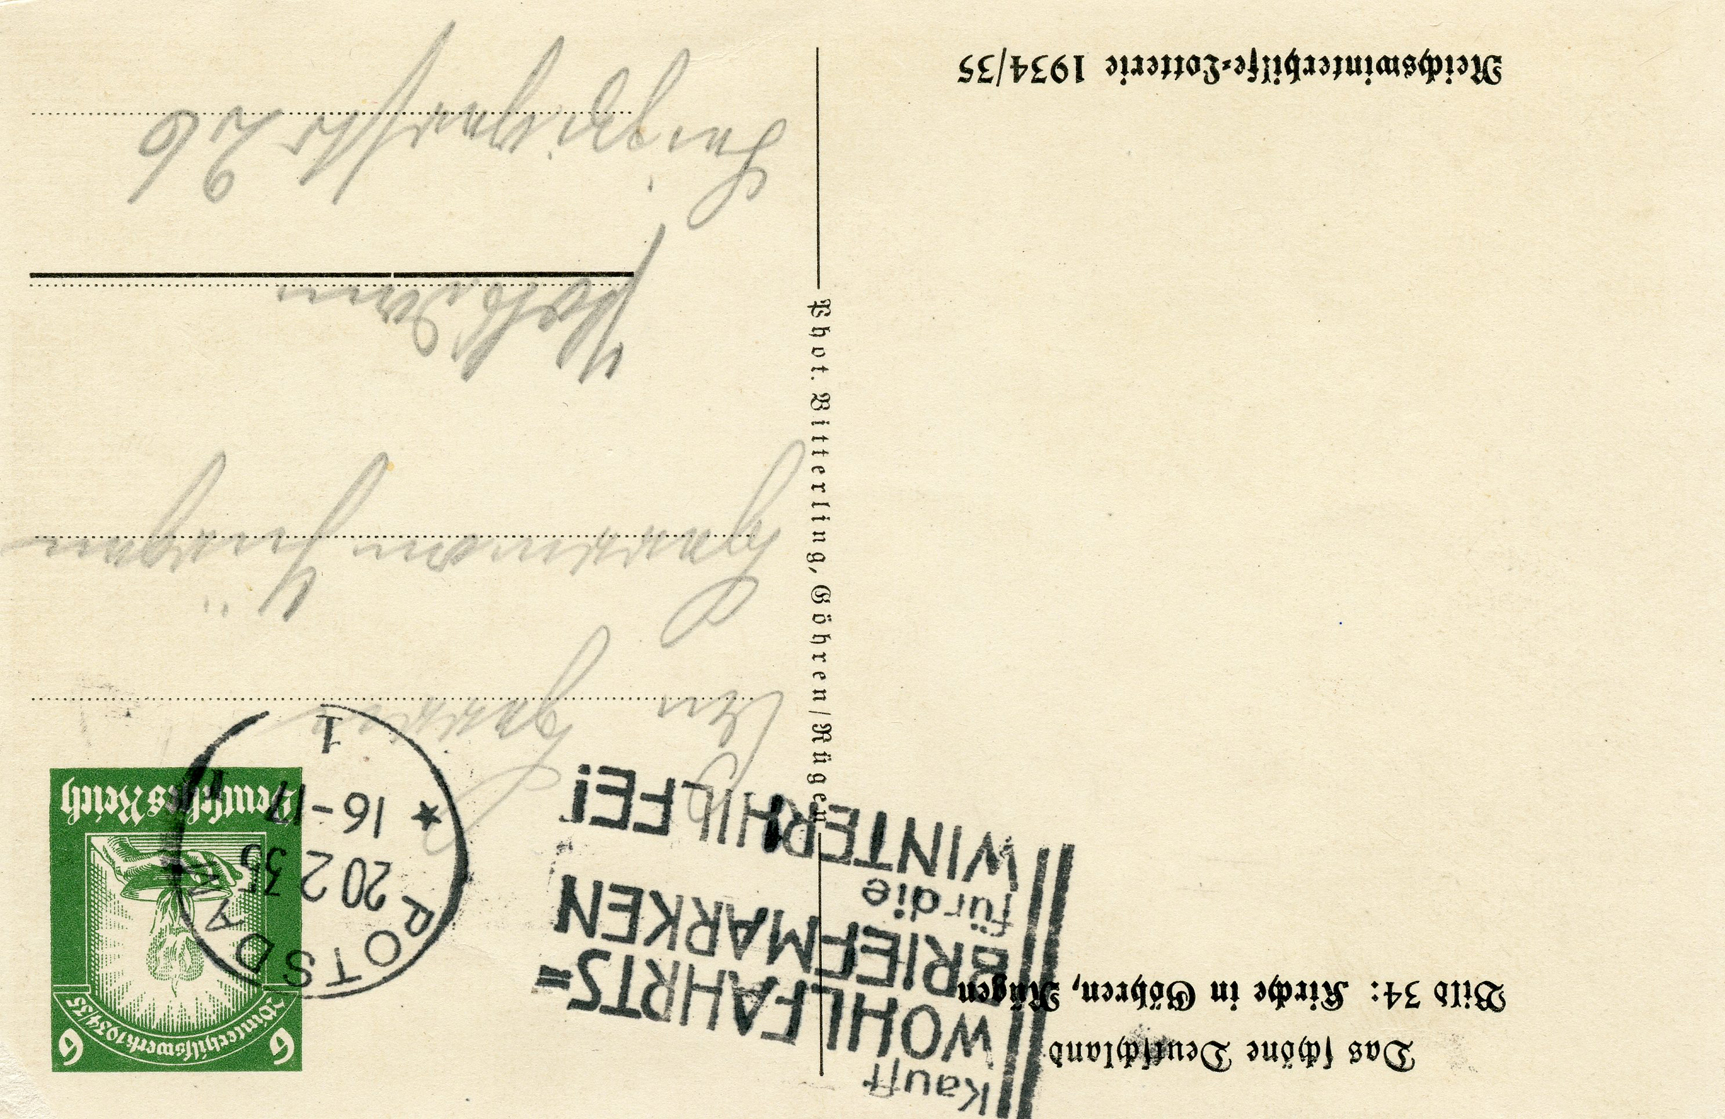 Das schöne Deutschland
Bild 34: Kirche in Göhren, Rügen
Reichswinterhilfe-Lotterie 1934/35
Phot. Bitterling, Göhren/Rügen
Kauft
WOHLFAHRTS=
BRIEFMARKEN
für die
WINTERHILFE!
POTSDAM
20 2 35
16-17
★ 1
6 Winterhilfswerk 1934/35 6
Deutsches Reich
Herrn
Herrmann Jürgen
Potsdam
26